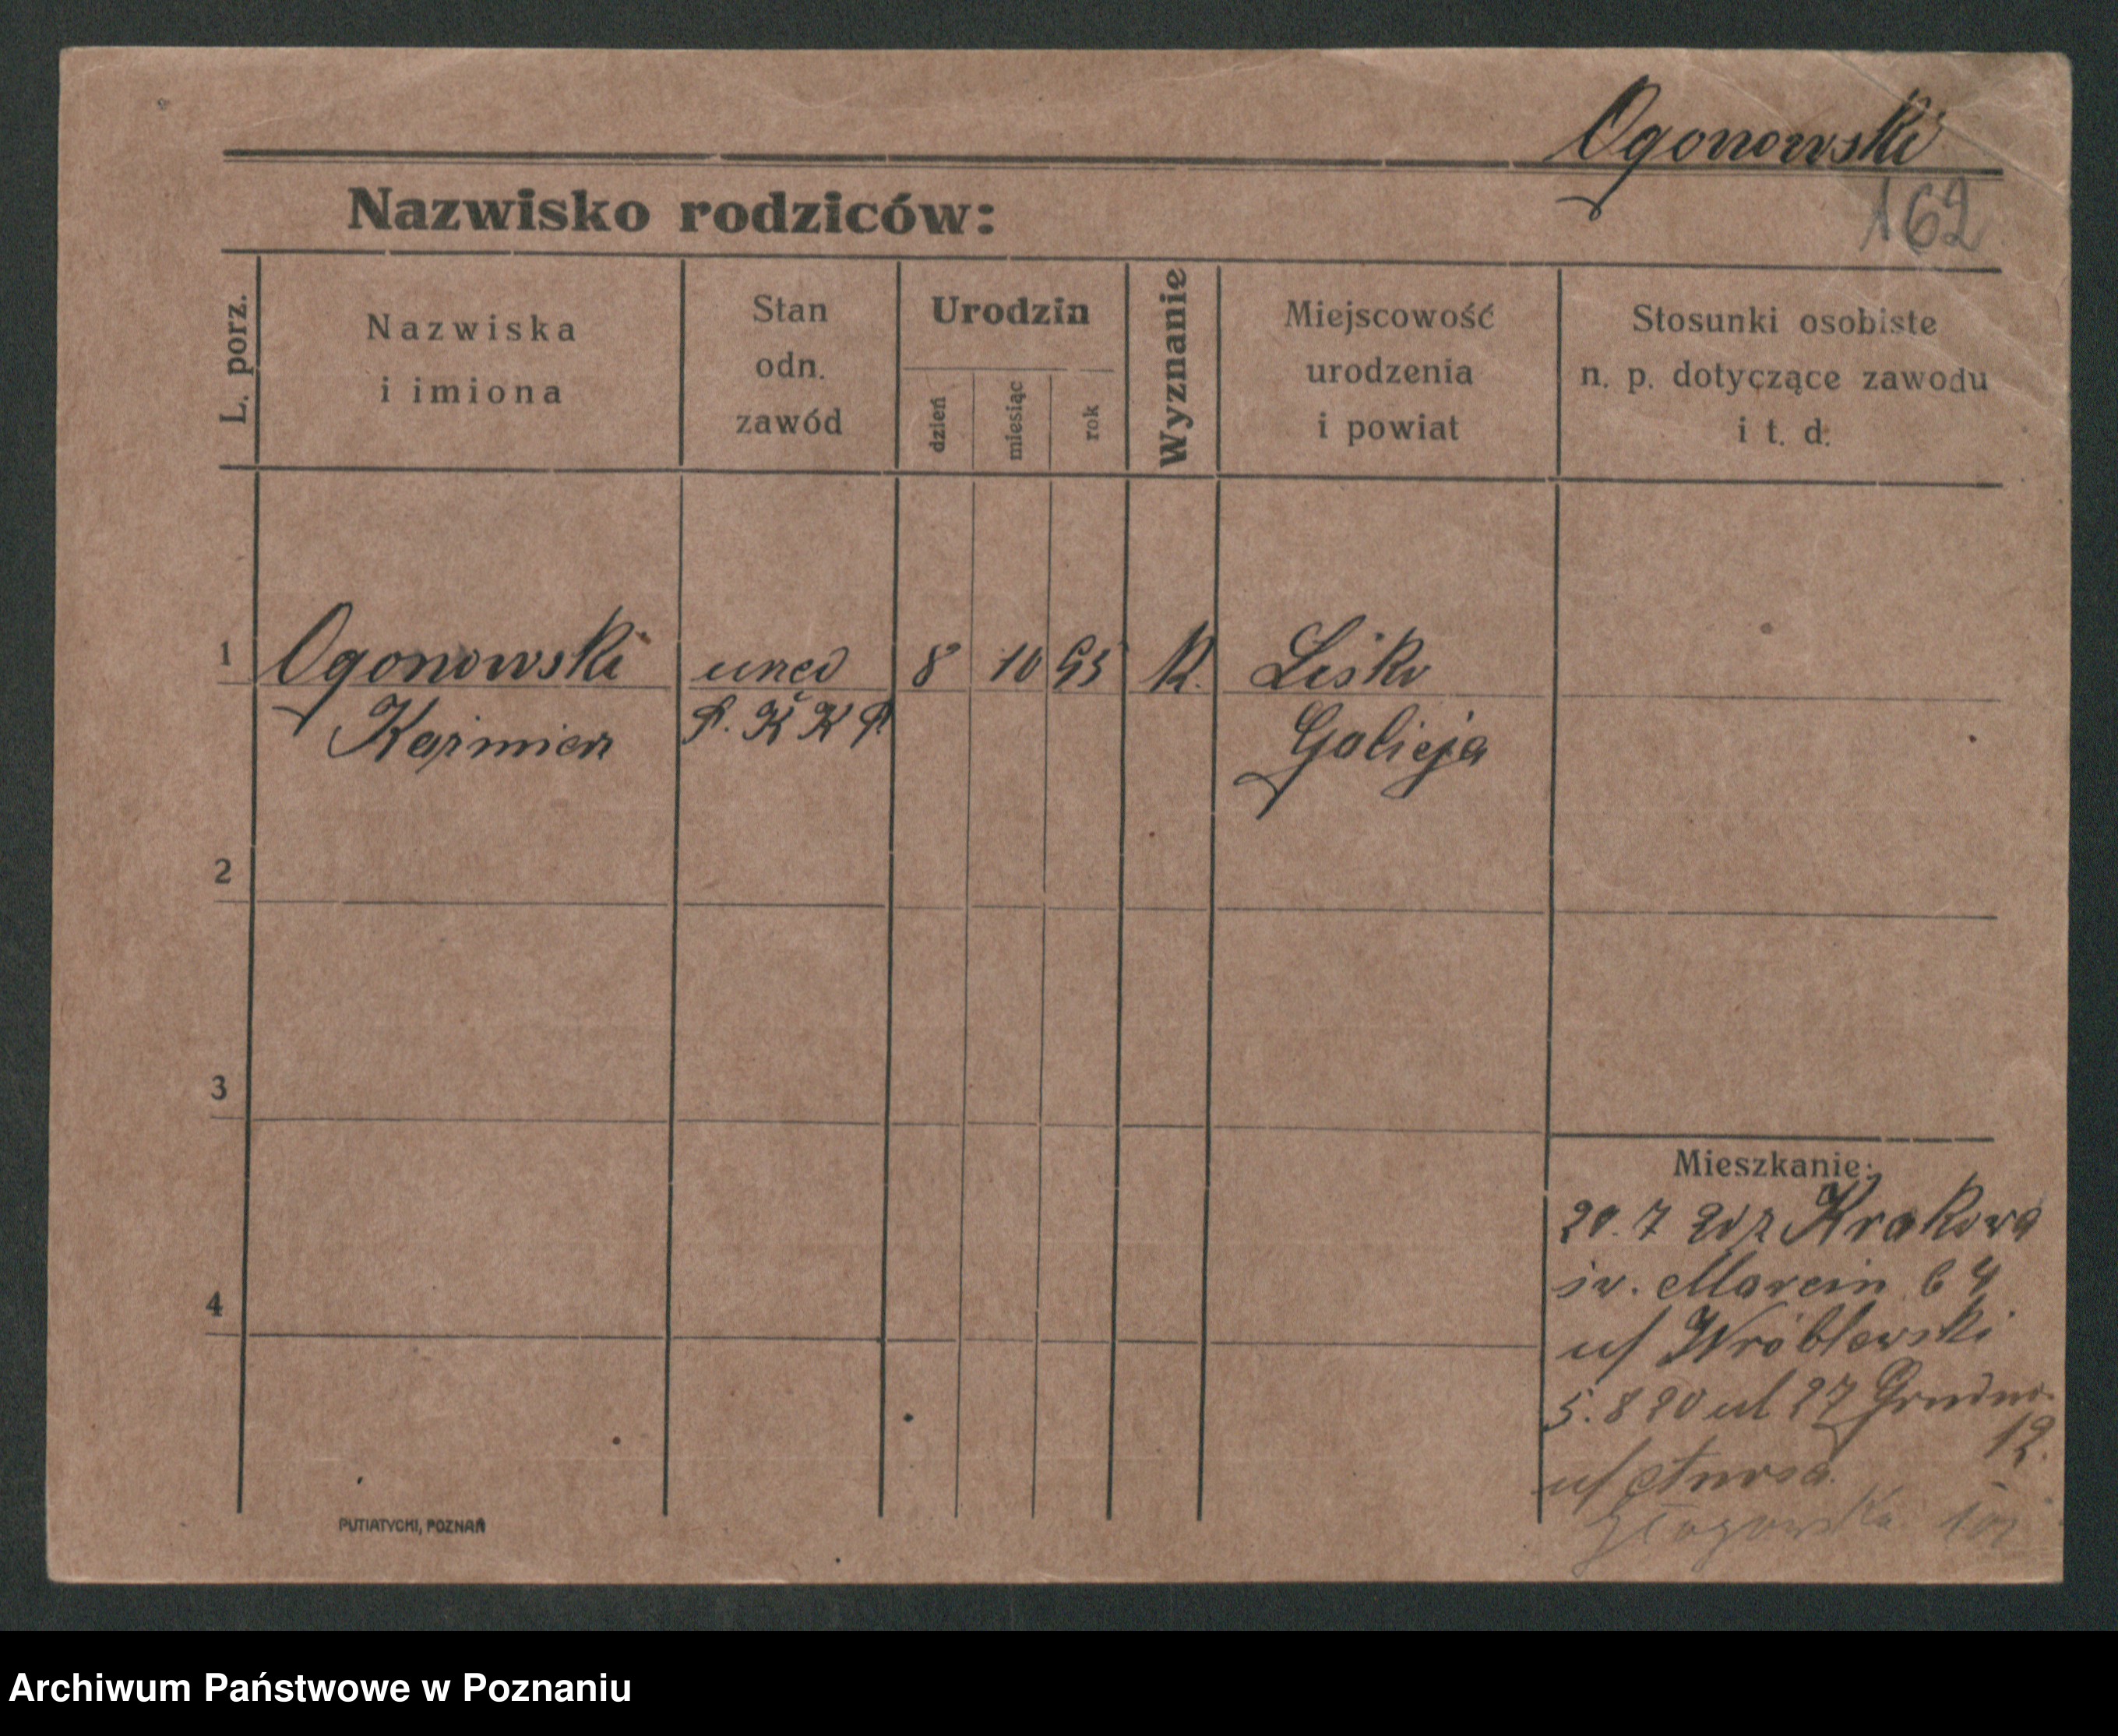 Ogonowski
162
Nazwisko rodziców:
L. porz.
Nazwiska
i imiona
Stan
odn.
zawód
Urodzin
dzień
miesiąc
rok
Wyznanie
Miejscowość
urodzenia
i powiat
Stosunki osobiste
n. p. dotyczące zawodu
i t. d.
1 Ogonowski 8 10 95 K. Lisko
Kazimierz P. K K P Galicja
2
3
4
Mieszkanie:
20.7 20 z Krakowa
św. Marcin 64
u/ Wróblewski
5.8 20 ul 27 Grudnia
12.
u/
Głogowska
PUTIATYCKI, POZNAŃ
Archiwum Państwowe w Poznaniu